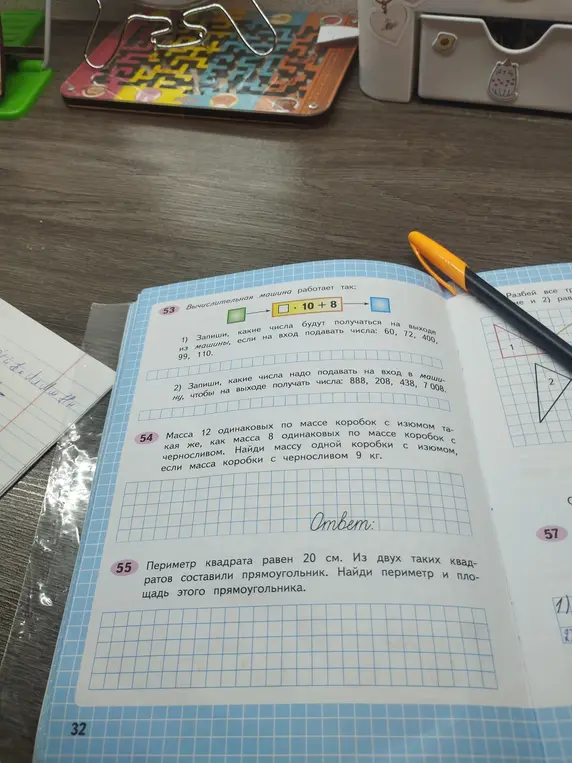 53 Вычислительная машина работает так:
□ · 10 + 8
1) Запиши, какие числа будут получаться на выходе
из машины, если на вход подавать числа: 60, 72, 400,
99, 110.
2) Запиши, какие числа надо подавать на вход в маши-
ну, чтобы на выходе получать числа: 888, 208, 438, 7 008.
54 Масса 12 одинаковых по массе коробок с изюмом та-
кая же, как масса 8 одинаковых по массе коробок с
черносливом. Найди массу одной коробки с изюмом,
если масса коробки с черносливом 9 кг.
Ответ:
55 Периметр квадрата равен 20 см. Из двух таких квад-
ратов составили прямоугольник. Найди периметр и пло-
щадь этого прямоугольника.
32
Разбей все
и 2)
1
2
57
1)